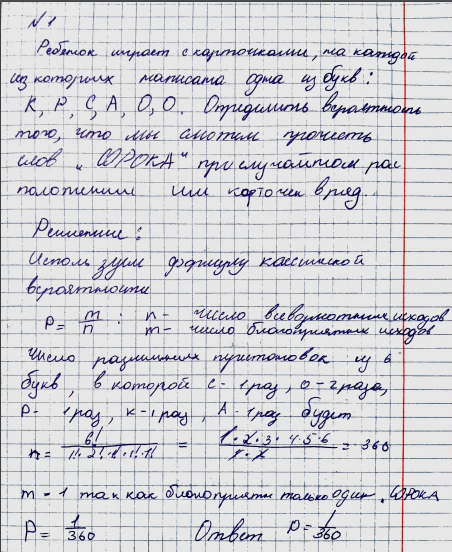 №1
Ребенок играет с карточками, на каждой
из которых написана одна из букв:
К, Р, С, А, О, О. Определить вероятность
того, что мы сможем прочесть
слов „СОРОКА" при случайном рас
положении им карточек в ряд.
Решение:
Использ зуем формулу классической
вероятности
P = m/n : n - число всевозможных исходов
m - число благоприятных исходов
Число различных перестановок из 6
букв, в которой с - 1 раз, о - 2 раза,
Р - 1 раз, к - 1 раз, А - 1 раз будет
n = 6!/1!·2!·1!·1!·1! = 1·2·3·4·5·6/1·2 = 360
m = 1 так как благоприятн только один. СОРОКА
P = 1/360 Ответ P = 1/360